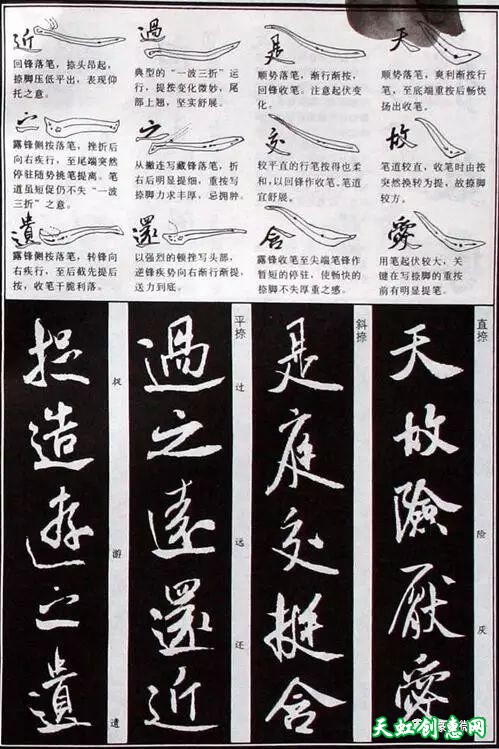 天
顺势落笔，爽利渐按行
笔，至底端重按后畅快
扬出收笔。
是
顺势落笔，渐行渐按，
回锋收笔。注意起伏变
化。
過
典型的“一波三折”运
行，提按变化微妙，尾
部上翘，坚实舒展。
近
回锋落笔，捺头昂起，
捺脚压低平出，表现仰
托之意。
故
笔道较直，收笔时由按
突然换转为提，故捺脚
较方。
交
较平直的行笔按得也柔
和，以回锋作收笔。笔道
宜舒展。
之
从撇连写藏锋落笔，折
右后明显提细，重按写
捺脚力求丰厚，忌拥肿。
之
露锋侧按落笔，挫折后
向右疾行，至尾端突然
停驻随势挑笔提离。笔
道虽短促仍不失“一波
三折”之意。
愛
用笔起伏较大，关
键在写捺脚的重按
前有明显提笔。
含
露锋收笔至尖端笔锋作
暂短的停驻，使畅快的
捺脚不失厚重之感。
還
以强烈的顿挫写头部，
逆锋疾势向右渐行渐提，
送力到底。
遺
露锋侧按落笔，转锋向
右疾行，至后截先提后
按，收笔干脆利落。
直捺
险
厌
天故險厭愛
斜捺
是庭交挺含
平捺
过
远
还
過之遠還近
游
遗
捉造遊之遺
天虹创意网